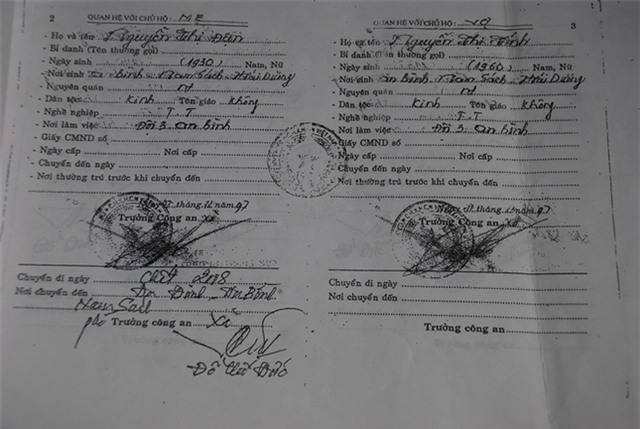 2 QUAN HỆ VỚI CHỦ HỘ: MẸ
- Họ và tên Nguyễn Thị
- Bí danh (Tên thường gọi)
- Ngày sinh (1930) Nam, Nữ
- Nơi sinh An Bình Nam Sách Hải Dương
- Nguyên quán nt
- Dân tộc Kinh Tôn giáo không
- Nghề nghiệp T.T
- Nơi làm việc Đội 3 An Bình
- Giấy CMND số
- Ngày cấp Nơi cấp
- Chuyển đến ngày
- Nơi thường trú trước khi chuyển đến
tháng 11 năm 97
Trưởng Công an Xã
Chuyển đi ngày chết 2008
Nơi chuyển đến An Bình
Nam Sách
Trưởng công an Xã
Đỗ
QUAN HỆ VỚI CHỦ HỘ: VỢ 3
- Họ và tên Nguyễn Thị
- Bí danh (Tên thường gọi)
Ngày sinh (1960) Nam, Nữ
- Nơi sinh An Bình Nam Sách Hải Dương
- Nguyên quán nt
- Dân tộc Kinh Tôn giáo không
- Nghề nghiệp T.T
- Nơi làm việc Đội 3 An Bình
- Giấy CMND số
Ngày cấp Nơi cấp
Chuyển đến ngày
- Nơi thường trú trước khi chuyển đến
tháng 11 năm 97
Trưởng Công an Xã
Chuyển đi ngày
Nơi chuyển đến
Trưởng công an